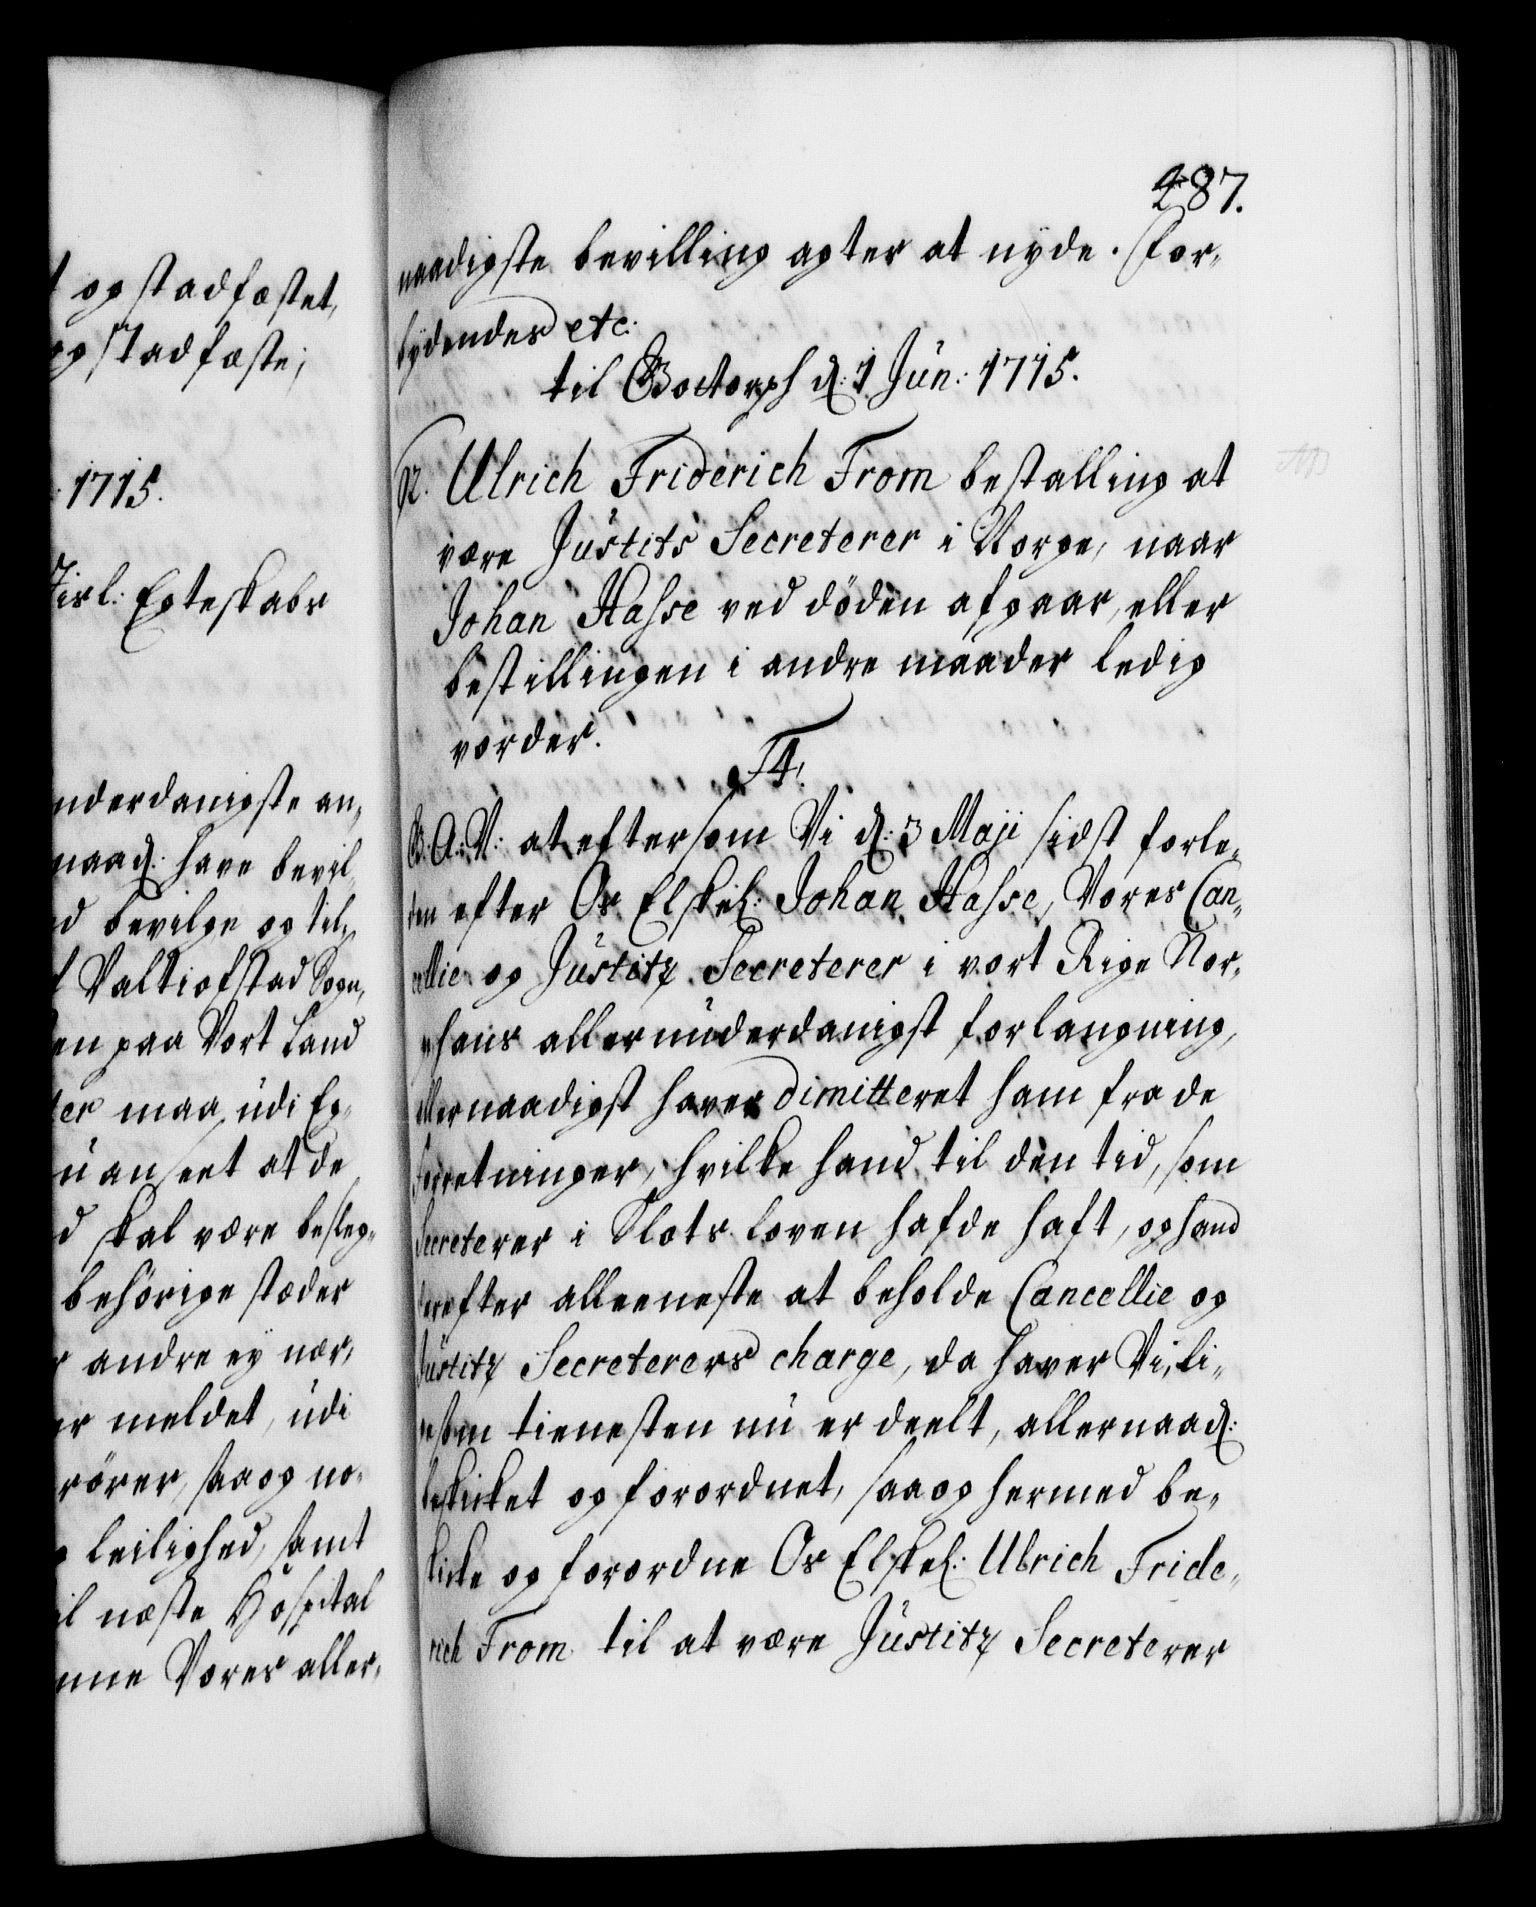 t og stadfæstet,
og stadfæste;
1715.
Tirl: Egteskabs
underdanigste an,
naad: have bevil,
d bevilge og til,
Valtiofstad Sogn,
en paa Vort Land
ter maa, udi Eg,
u anseet at de
d skal være besleg,
behörige stæder
andre ey nær,
er meldet, udi
rörer, saa og no,
leilighed, samt
il næste Hospital
nne Vores aller,
287.
naadigste bevilling agter at nyde. For,
bydendes etc:
til Gottorph d: 1 Jun: 1715.
Ulrich Friderich From bestalling at
være Justits Secreterer i Norge, naar
Johan Hasse ved döden afgaar, eller
bestillingen i andre maader ledig
vorder.
F4.
G: A: V: at eftersom Vi d: 3 Maji sidst forle,
den efter Os Elskel: Johan Hasse, Vores Can,
cellie og Justitz Secreterer i vort Rige Nor,
ge hans allerunderdanigst forlangning,
allernaadigst haver dimitteret ham fra de
forretninger, hvilke hand til den tid, som
Secreterer i Slots loven hafde haft, og hand
derefter alleeneste at beholde Cancellie og
Justitz Secreterers charge, da haver Vi, li,
gesom tienesten nu er deelt, allernaad:
beskicket og forordnet, saa og hermed be,
skicke og forordne Os Elskel: Ulrich Fride,
rich From til at være Justitz Secreterer